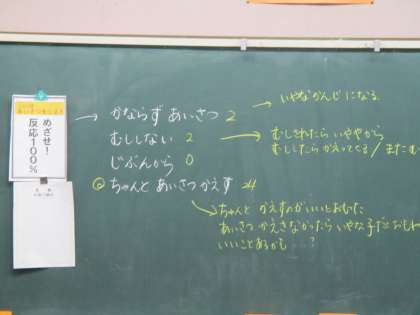 めざせ！
反応100％
かならず あいさつ 2
むししない 2
じぶんから 0
◎ ちゃんと あいさつ かえす 24
いやなかんじになる
むしされたら いややから
むししたら かえってくる / またむ
ちゃんと かえすのがいいとおもた
あいさつ かえさなかったら いやな子だとおもわ
いいことあるかも...?